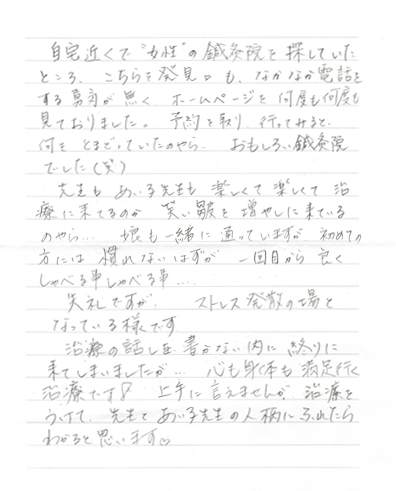 自宅近くで"女性"の鍼灸院を探していた
ところ、こちらを発見。も、なかなか電話を
する勇気が無く ホームページを何度も何度も
見ておりました。予約を取り、行ってみると、
何をとまどっていたのやら おもしろい鍼灸院
でした(笑)
先生も あいる先生も 楽しくて楽しくて 治
療に来てるのか 笑い皺を増やしに来ている
のやら… 娘も一緒に通っていますが 初めての
方には慣れないはずが 一回目から良く
しゃべる事しゃべる事…
失礼ですが、ストレス発散の場と
なっている様です
治療の話しを書かない内に終りに
来てしまいましたが… 心も身体も満足行く
治療です! 上手に言えませんが、治療を
うけて、先生と あいる先生の人柄にふれたら
わかると思います♡